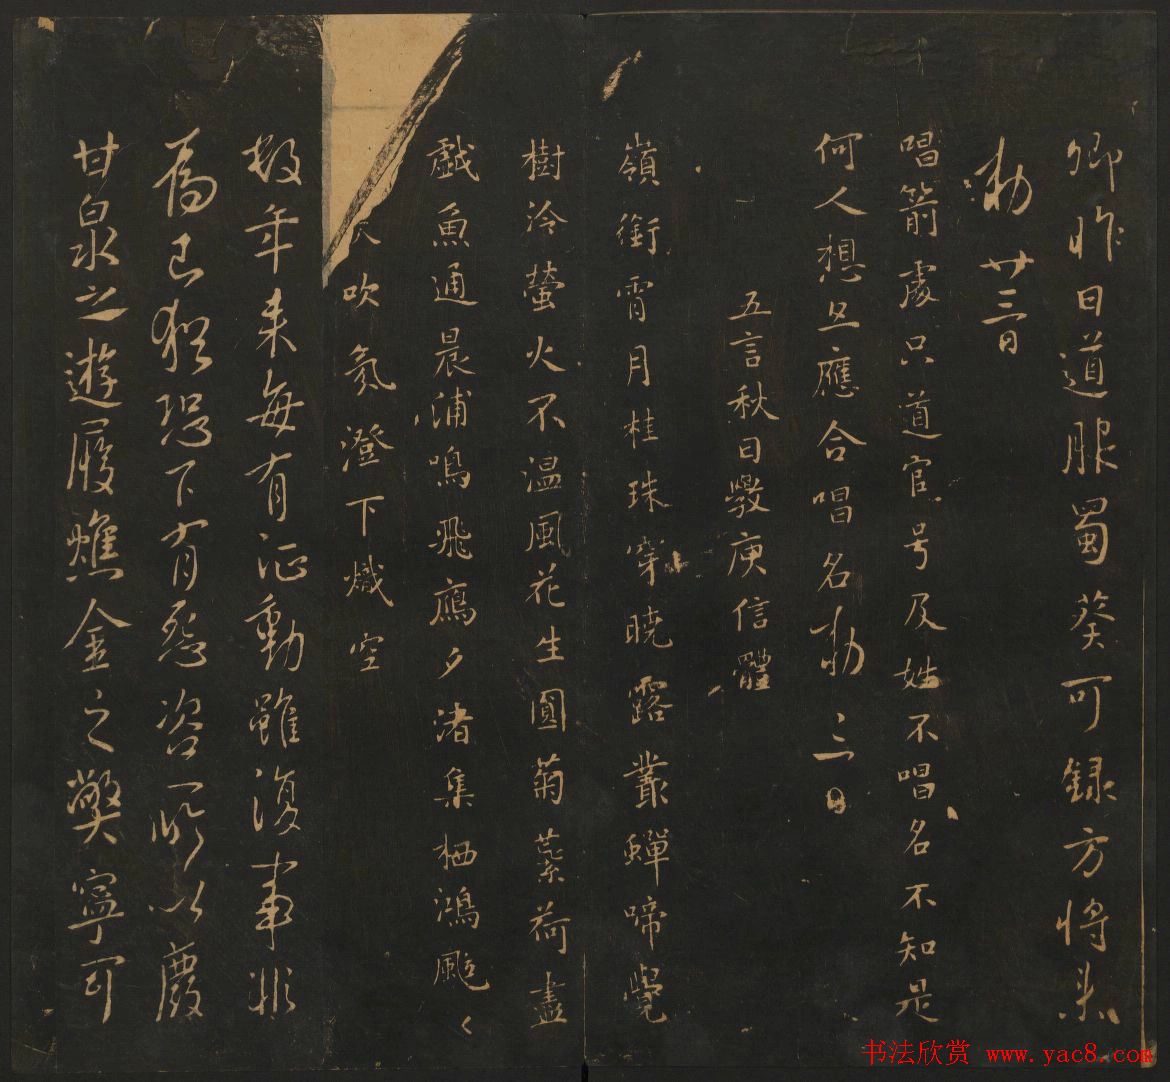 卿昨日道服蜀葵可録方將来
勅 廿三日
唱箭處只道官号及姓不唱名不知是
何人想旦應合唱名勅 三日
五言秋日斆庾信體
嶺銜霄月桂珠穿曉露叢蟬啼覺
樹冷螢火不温風花生圓菊蘂荷盡
戲魚通晨浦鳴飛鴈夕渚集栖鴻颸〻
天吹氛澄下熾空
数年来每有征動雖復事非
為己猶恐下有怨咨所以廢
甘泉之遊履燋金之弊寧可
书法欣赏 www.yac8.com